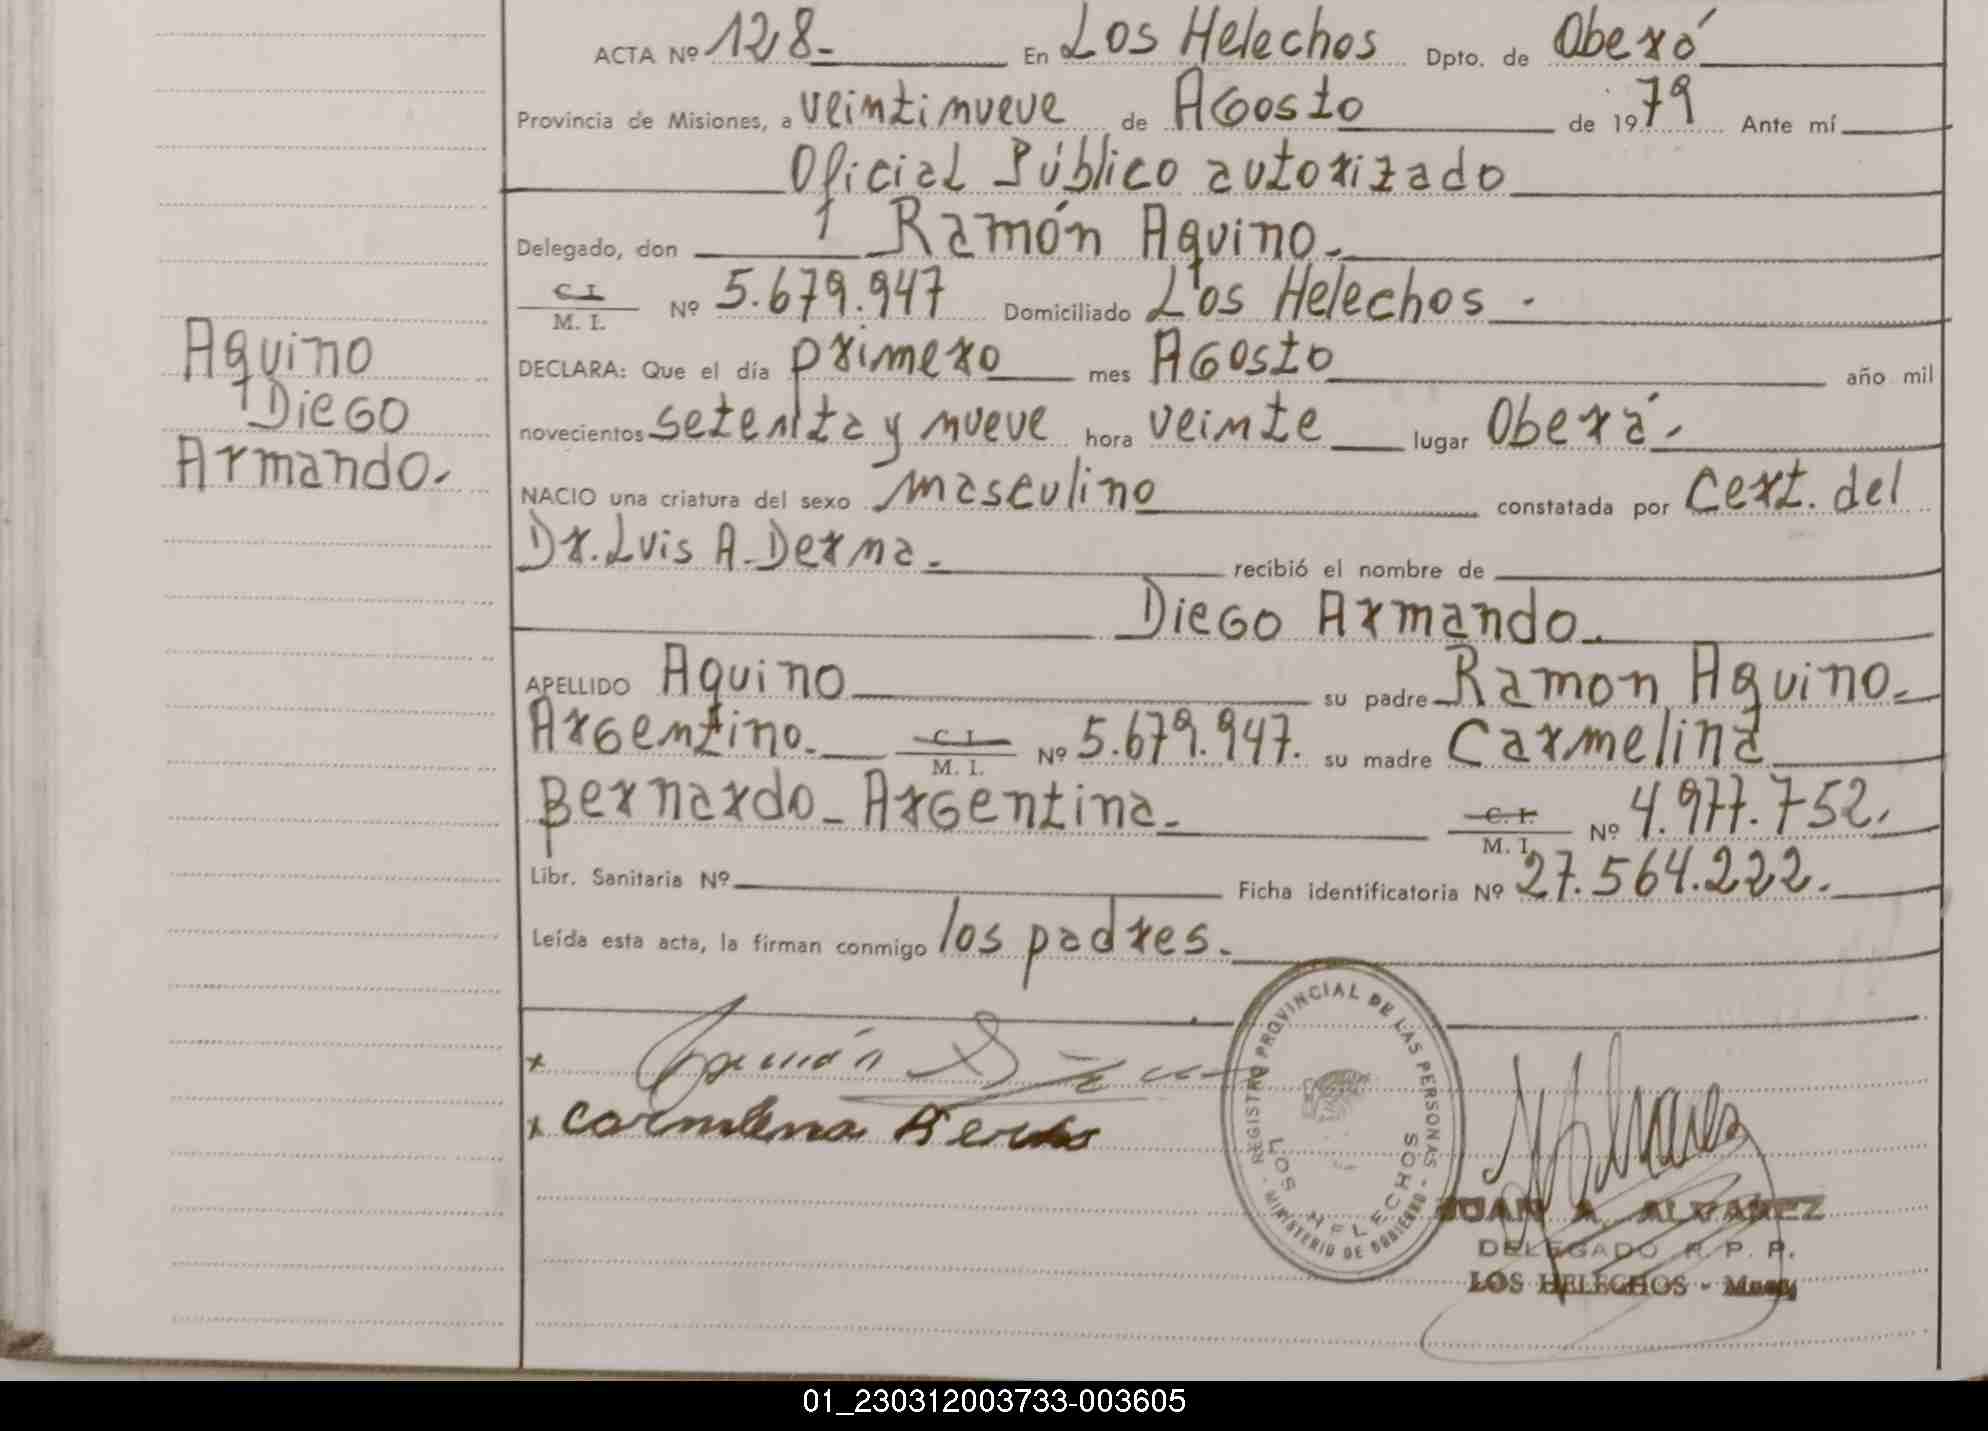 ACTA Nº 128.- En Los Helechos Dpto. de Oberá
Provincia de Misiones, a veintinueve de Agosto de 1979 Ante mí
Oficial Público autorizado
Delegado, don Ramón Aquino.-
C I / M. I. Nº 5.679.947 Domiciliado Los Helechos.
DECLARA: Que el día primero mes Agosto año mil
novecientos setenta y nueve hora veinte lugar Oberá.
NACIO una criatura del sexo masculino constatada por Cert. del
Dr. Luis A. Derna.- recibió el nombre de
Diego Armando.
APELLIDO Aquino su padre Ramon Aquino.-
Argentino.- C. I. / M. I. Nº 5.679.947. su madre Carmelina
Bernardo - Argentina.- C. I. / M. I. Nº 4.977.752.
Libr. Sanitaria Nº Ficha identificatoria Nº 27.564.222.
Leída esta acta, la firman conmigo los padres.-
Aquino
Diego
Armando.
x
x
REGISTRO PROVINCIAL DE LAS PERSONAS
- MINISTERIO DE GOBIERNO -
LOS HELECHOS
JUAN A. ALVAREZ
DELEGADO R. P. P.
LOS HELECHOS -
01_230312003733-003605